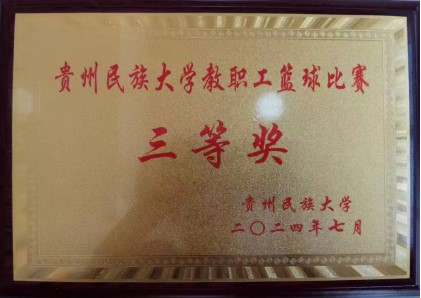 贵州民族大学教职工篮球比赛
三等奖
贵州民族大学
二〇二四年七月